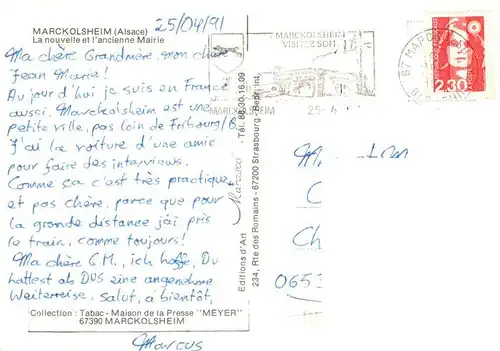 MARCKOLSHEIM (Alsace)
La nouvelle et l'ancienne Mairie
25/04/91
Ma chère Grandmère, mon cher
Jean Marie!
Aujourd'hui je suis en France
aussi. Marckolsheim est une
petite ville, pas loin de Fribourg/B.
J'ai la voiture d'une amie
pour faire des interviews.
Comme ça c'est très pratique
et pas chère, parce que pour
la grande distance j'ai pris
le train, comme toujours!
Ma chère G.M., ich hoffe, Du
hattest ab DUS eine angenehme
Weiterreise. Salut, à bientôt,
Marcus
Collection : Tabac - Maison de la Presse "MEYER"
67390 MARCKOLSHEIM
Editions d'Art
234, Rte des Romains - 67200 Strasbourg
Tél. 88.30.16.09
Repr. int.
MARCKOLSHEIM
VISITEZ SON
MARCKOLSHEIM
25-4
67 MARC
2,30